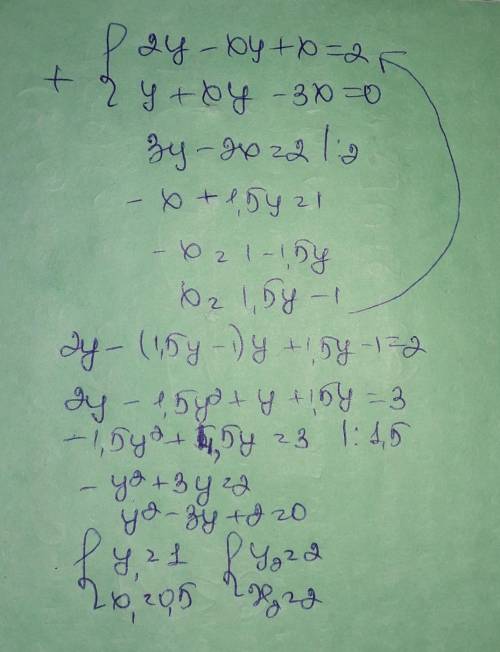 2y - xy + x = 2
+ { y + xy - 3x = 0
3y - 2x = 2 |:2
- x + 1,5y = 1
- x = 1 - 1,5y
x = 1,5y - 1
2y - (1,5y - 1)y + 1,5y - 1 = 2
2y - 1,5y² + y + 1,5y = 3
- 1,5y² + 4,5y = 3 |:1,5
- y² + 3y = 2
y² - 3y + 2 = 0
{ y₁ = 1 { y₂ = 2
x₁ = 0,5 x₂ = 2